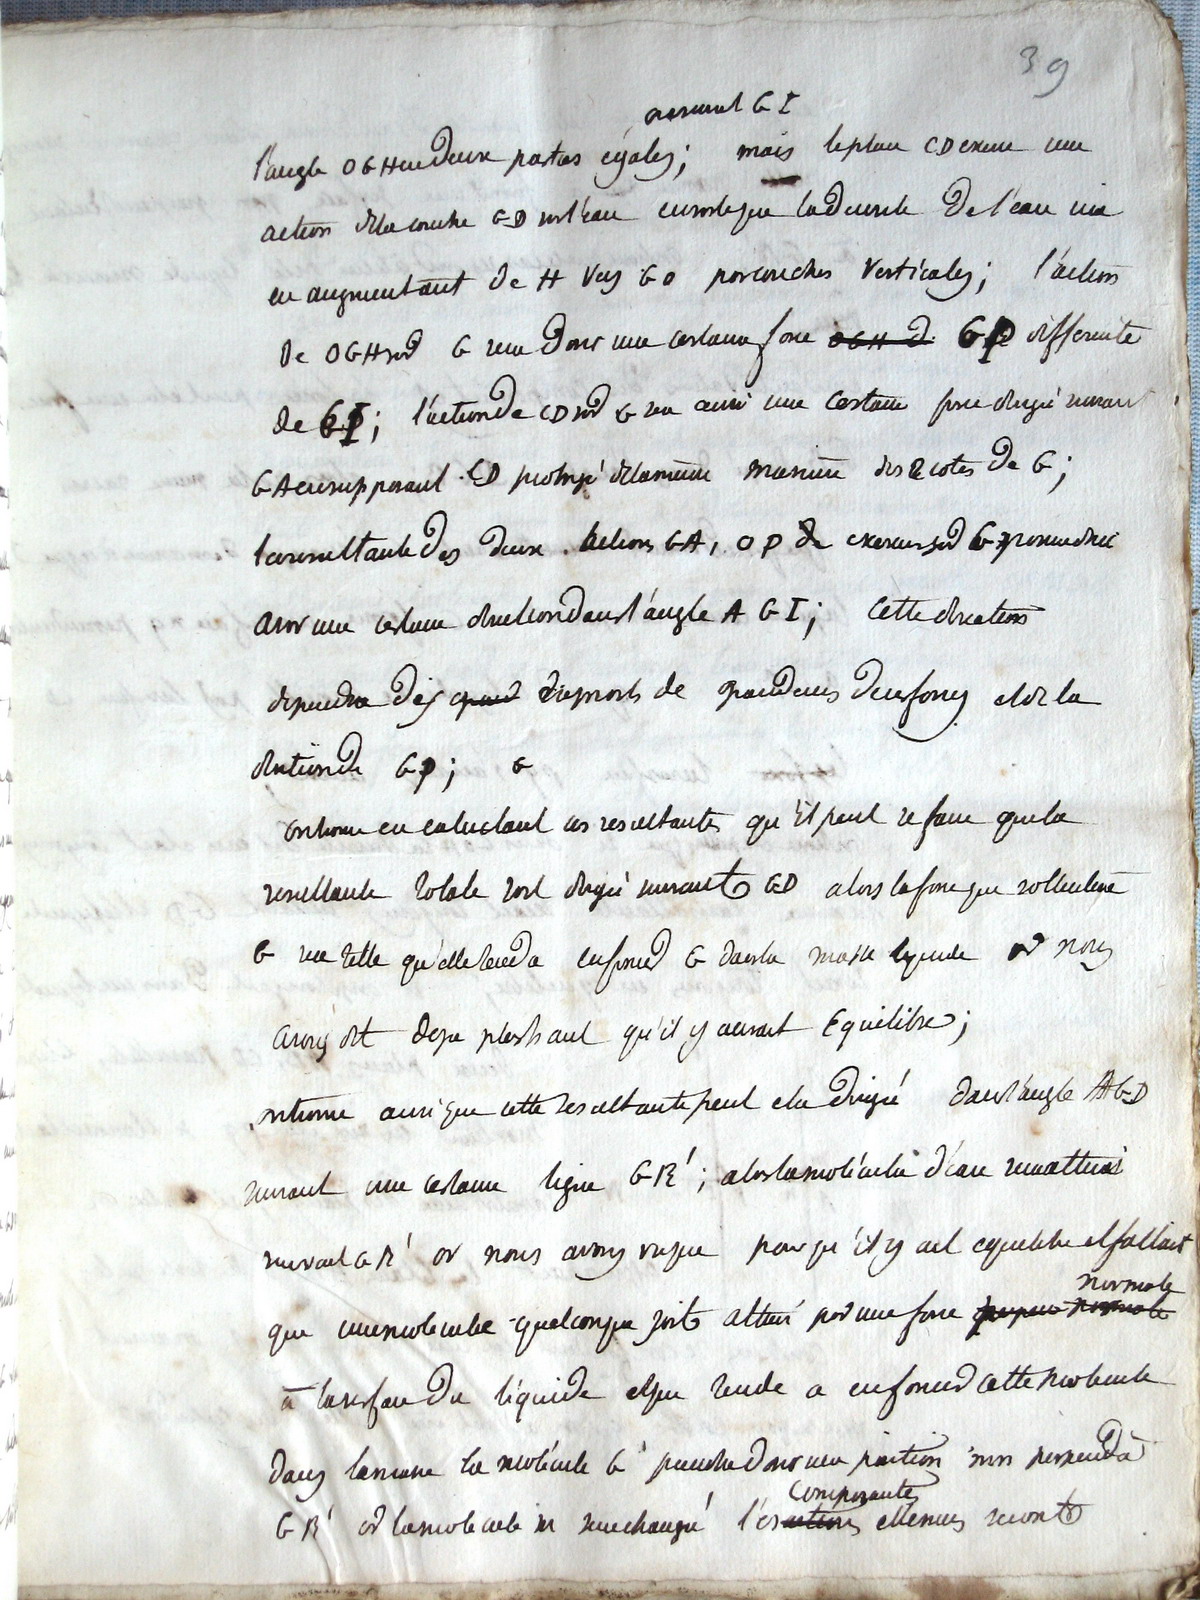 39
suivant G I
l'angle OGH en deux parties égales; mais le plan CD exerce une
action de la couche GD sur l'eau
en augmentant de H vers GO par couches verticales; l'action
de OGH sur G sera donc une certaine force OGH d GP differente
de GI; l'action de CD sur G sera aussi une certaine force dirigée suivant
GA en supposant CD prolongé de la même maniere des 2 cotés de G;
la resultante des deux actions GA, OP
avoir une certaine direction dans l'angle A G I; cette direction
dependra des grand rapports de grandeurs des forces et de la
direction de GP; G
on trouve en calculant ces resultantes qu'il peut se faire que la
resultante totale soit dirigée suivant GD alors la force que sollicitent
G sera telle qu'elle tendra enfoncer G dans la masse liquide or nous
avons dit deja plus haut qu'il y aurait Equilibre;
on trouve aussi que cette resultante peut etre dirigée dans l'angle AGD
suivant une certaine ligne GR'; alors la molécule d'eau sera attirée
suivant GR' or nous avons vu que pour qu'il y ait equilibre il fallait
normale
que une molecule quelconque soit attirée par une force normale
à la surface du liquide et qui tende a enfoncer cette molecule
dans la masse la molécule G prendra donc une position perpend à
composantes
GR' or la molecule m sera changée l'es actions elles memes seront